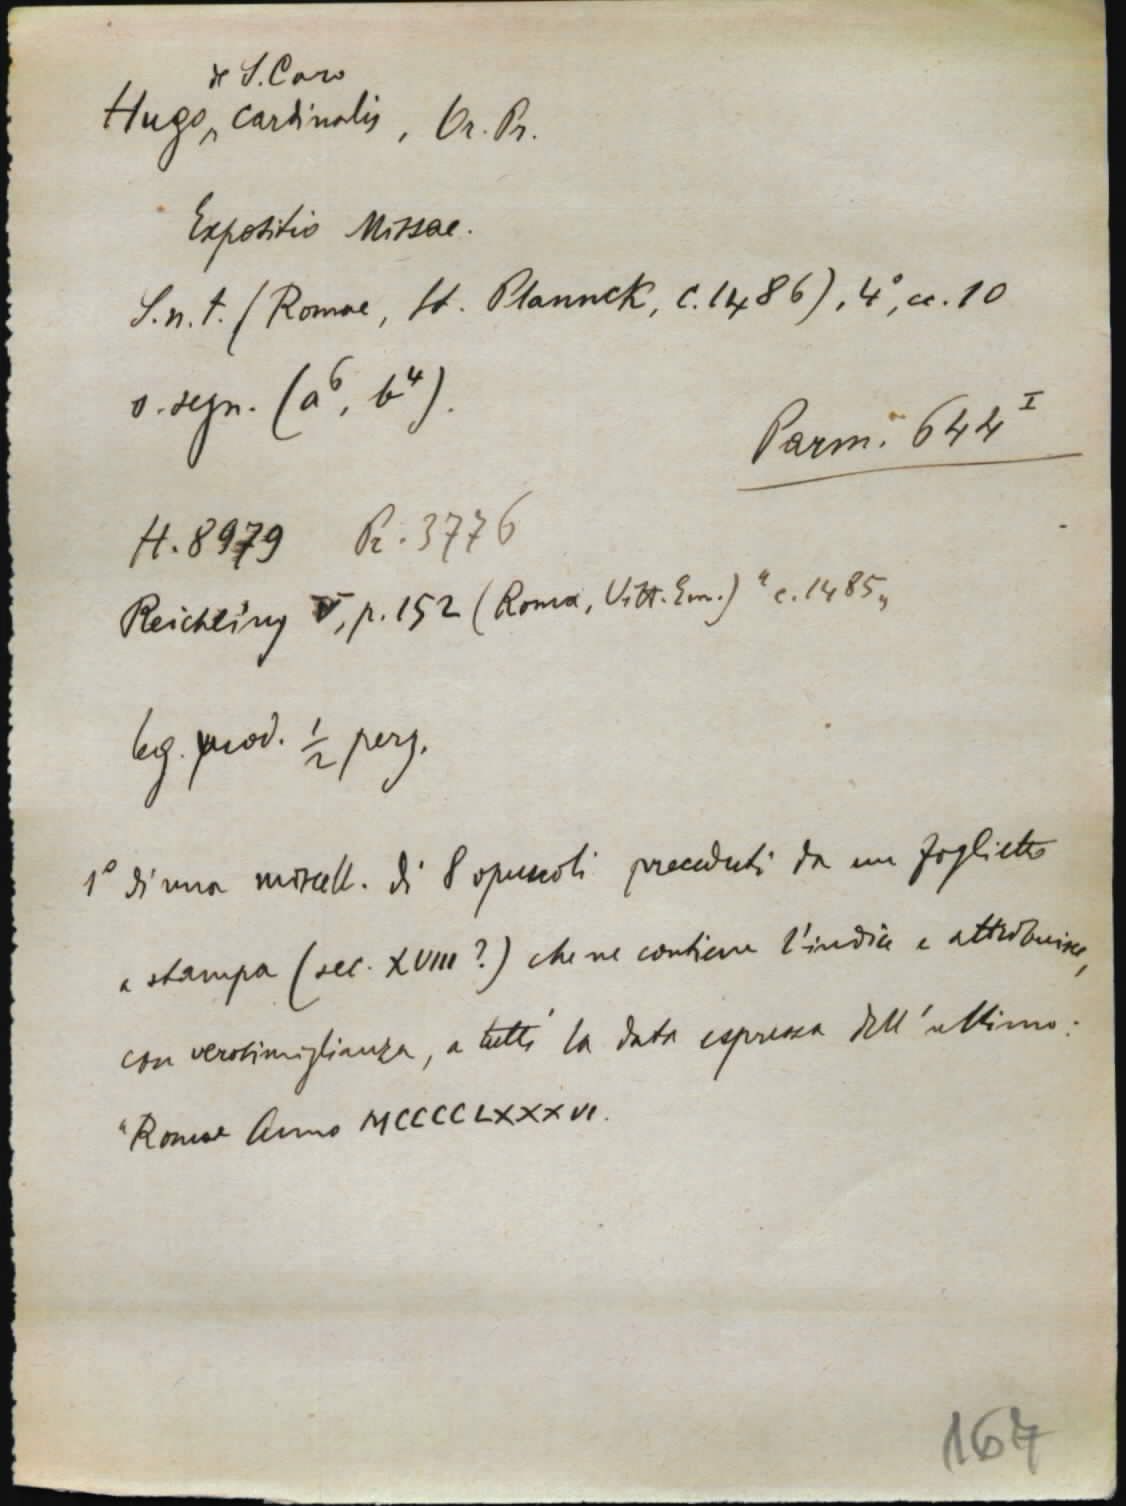 de S. Caro
Hugo, Cardinalis, Or. Pr.
Expositio Missae.
S.n.t. (Romae, St. Plannck, c.1486), 4°, cc. 10
s. segn. (a⁶, b⁴).
Parm. 644 I
H. 8979 Pr. 3776
Reichling V, p. 152 (Roma, Vitt. Em.) "c. 1485"
leg. mod. 1/2 perg.
1° di una miscell. di 8 opuscoli preceduti da un foglietto
a stampa (sec. XVIII?) che ne contiene l'indice e attribuisce,
con verosimiglianza, a tutti la data espressa dell'ultimo:
"Romae Anno MCCCCLXXXVI.
167